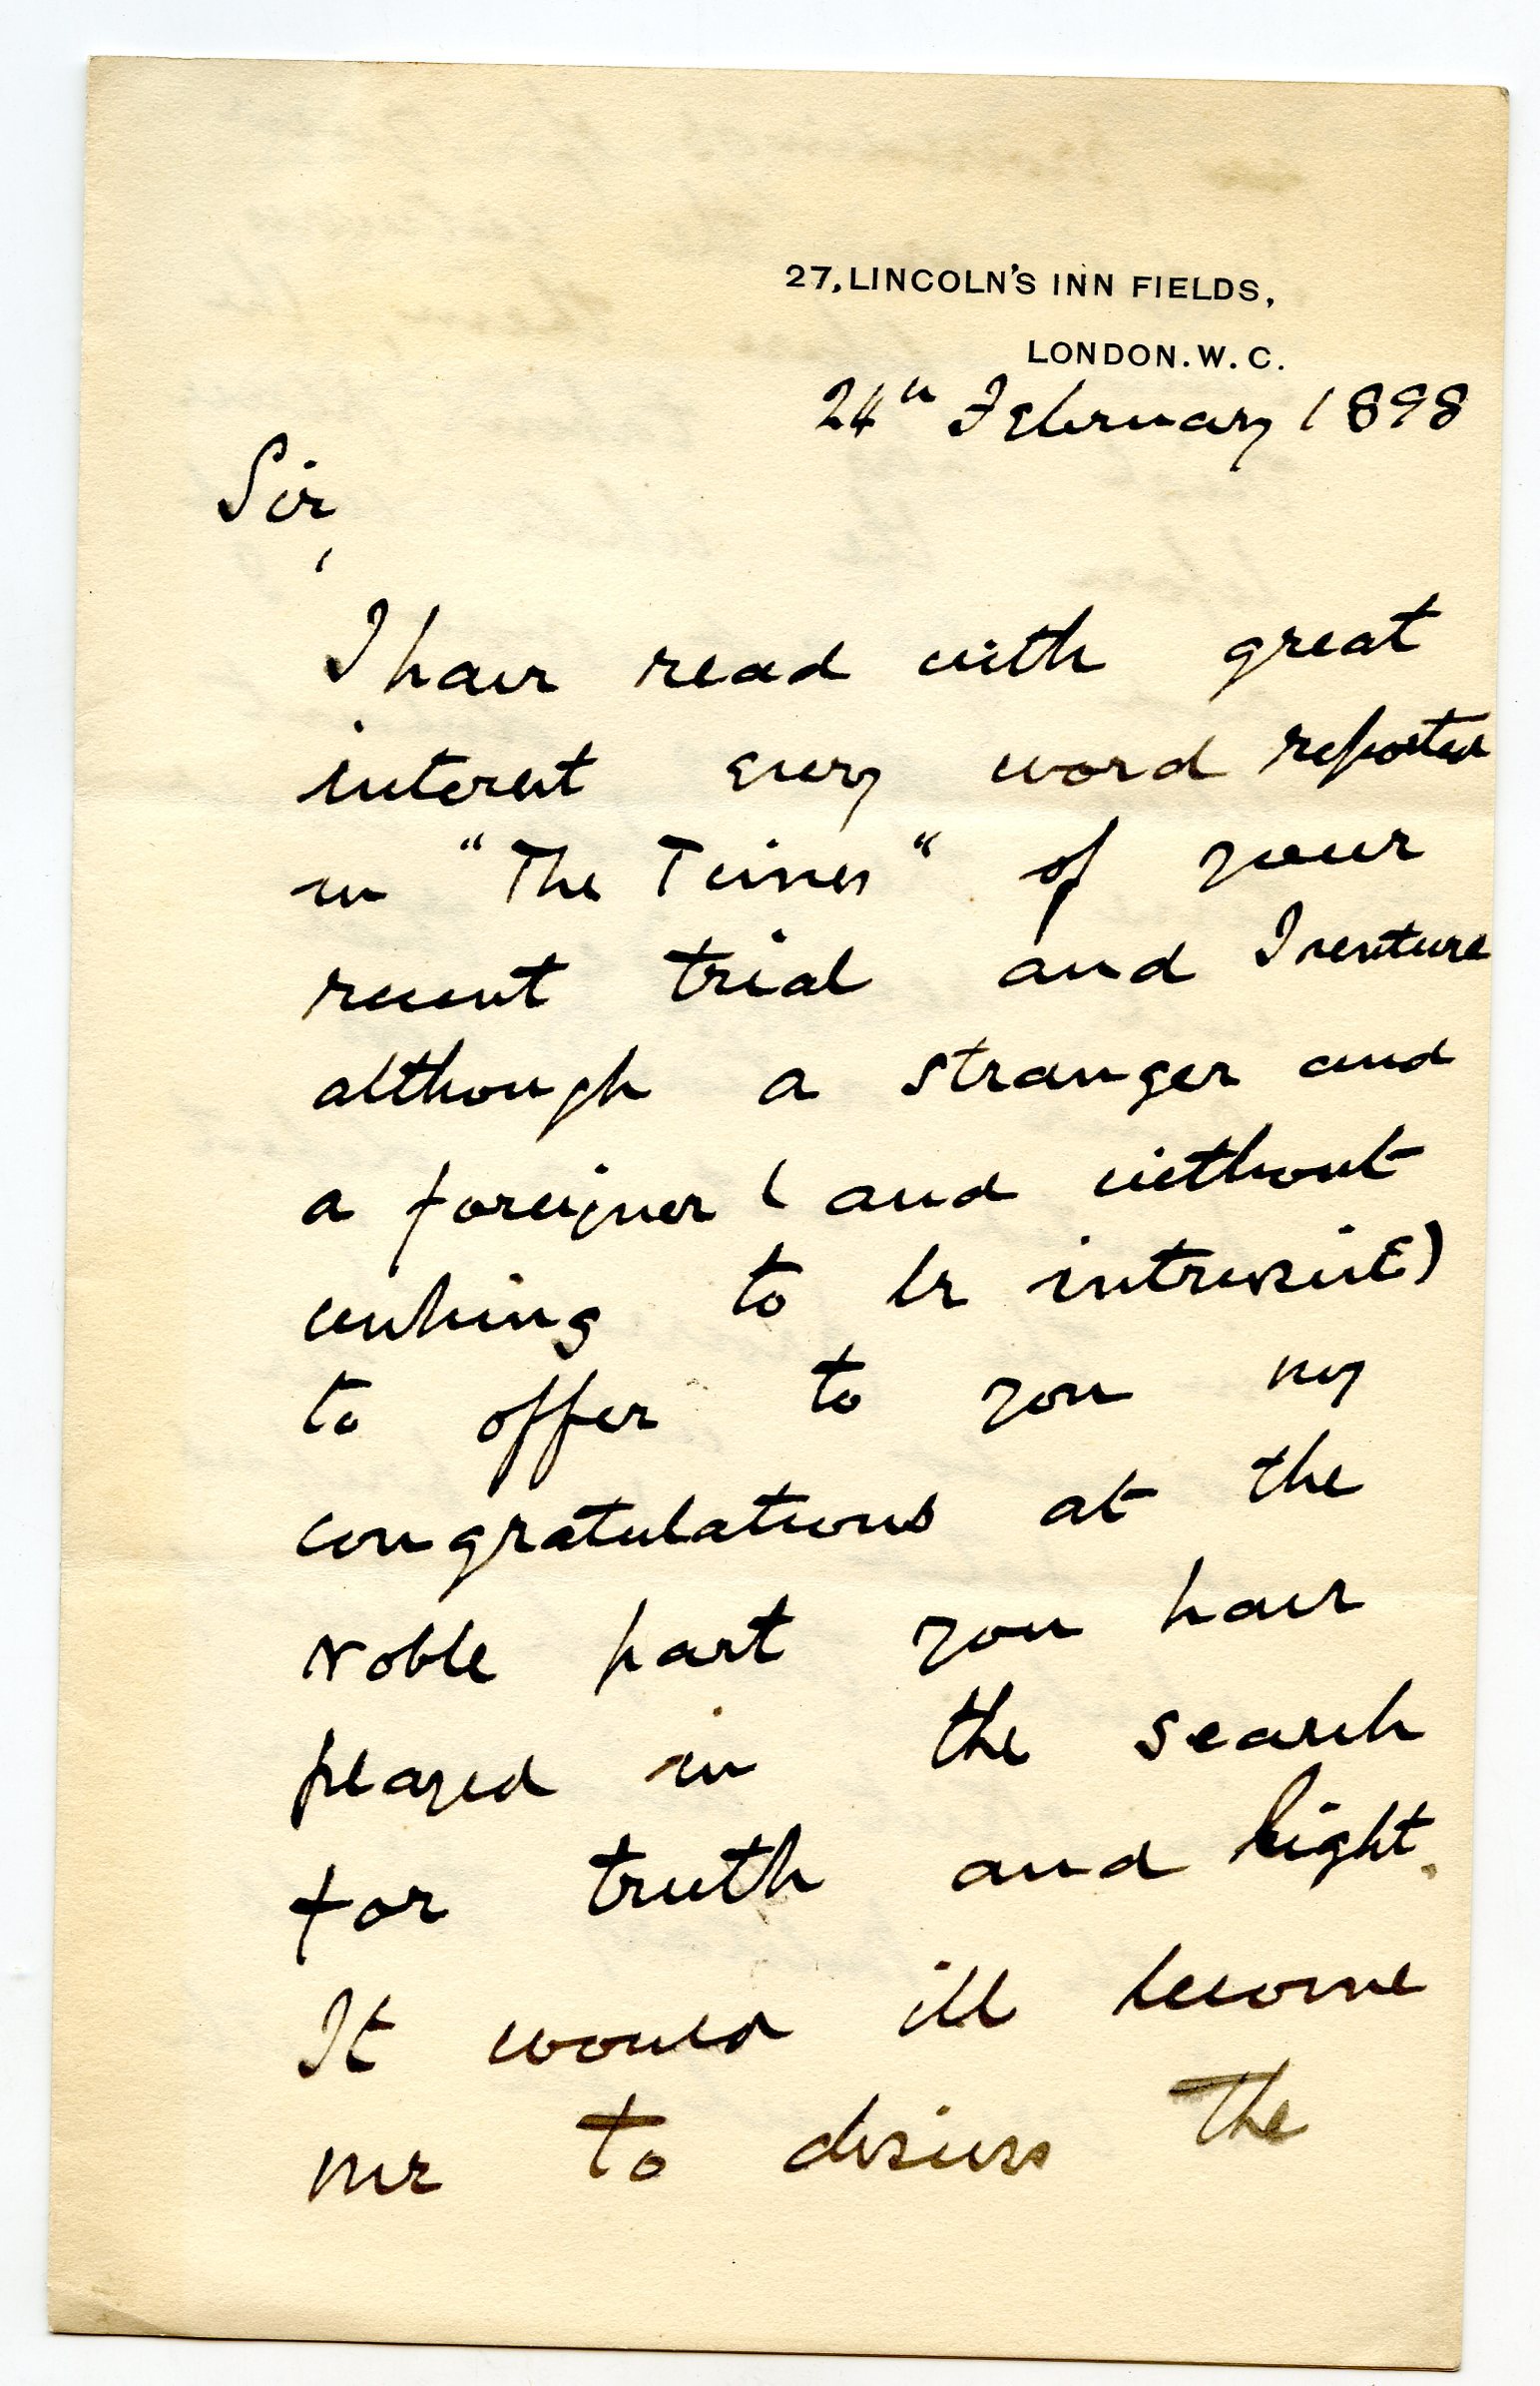 27, LINCOLN'S INN FIELDS,
LONDON. W. C.
24th February 1898
Sir,
I have read with great
interest every word reported
in "The Times" of your
recent trial and I venture
although a stranger and
a foreigner (and without
wishing to be intrusive)
to offer to you my
congratulations at the
Noble part you have
played in the search
for truth and light.
It would ill become
me to discuss the